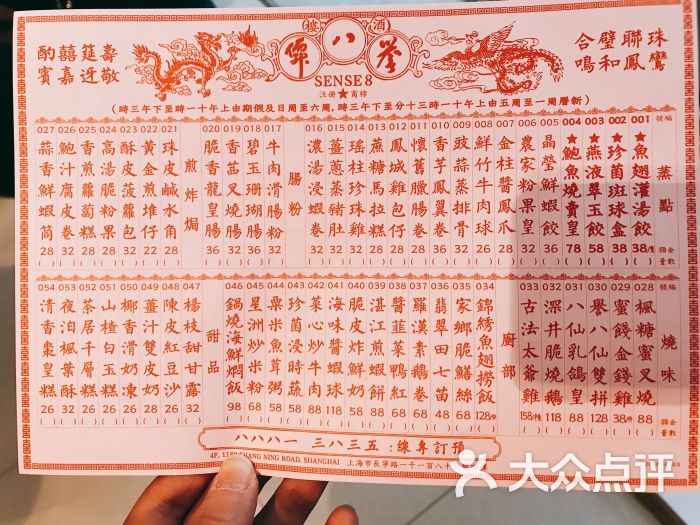 酒樓
譽八僊
SENSE 8
注册★商標
壽筵囍酌
敬迓嘉賓
珠聯璧合
鸞鳳和鳴
新曆週一至週五由上午十一時三十分至下午三時，週六至週日及假期由上午十一時至下午三時
號編
蒸點
價金
量數
001 ★魚翅灌湯餃 38/隻
002 ★珍菌斑球盒 38
003 ★燕液翠玉餃 58
004 ★鮑魚燒賣皇 78
005 晶瑩鮮蝦餃 36
006 農家粉果皇 32
007 金柱醬鳳爪 28
008 鮮竹牛肉球 32
009 豉蒜蒸排骨 36
010 香芋鳳翼卷 32
011 懷舊臘腸卷 32
012 鳳城雞包仔 28
013 蔗糖馬拉糕 28
014 瑤柱珍珠雞 32
015 薑蔥蒸豬肚 32
016 濃湯浸蝦卷 32
腸粉
017 牛肉滑腸粉 32
018 碧玉珊瑚腸 32
019 香茜叉燒腸 32
020 脆香龍皇腸 36
煎炸焗
021 珠皮鹹水角 28
022 黃金煎堆仔 28
023 酥皮菠蘿包 32
024 高湯脆粉果 28
025 香煎蘿蔔糕 28
026 鮑汁腐皮卷 32
027 蒜香鮮蝦筒 28
號編
燒味
價金
量數
028 楓糖蜜叉燒 88
029 蜜餞金錢雞 38/件
030 譽八仙雙拼 128
031 八仙乳鴿皇 88
032 深井脆燒鵝 118
033 古法太爺雞 158/隻
廚部
034 錦綉魚翅撈飯 128/位
035 家鄉脆鱔絲 68
036 翡翠七苗 48
037 羅漢素鵝卷 68
038 醬韮菜鴨紅 68
039 湛江煎蝦餅 88
040 脆皮炸鮮奶 68
041 海味醬蝦球 58
042 菜心炒牛肉 88
043 珍菌浸時蔬 58
044 粟米魚茸粥 58
045 星洲炒米粉 68
046 鍋燒海鮮燜飯 98
甜品
047 楊枝甜甘露 32
048 陳皮紅豆沙 26
049 薑汁雙皮奶 32
050 椰香滑奶凍 26
051 山楂白玉糕 26
052 茶居千層糕 32
053 夜泊楓葉酥 32
054 清香棗皇糕 26
預訂專線：五三八三 一八八八
4F, 1180 CHANG NING ROAD, SHANGHAI
大众点评